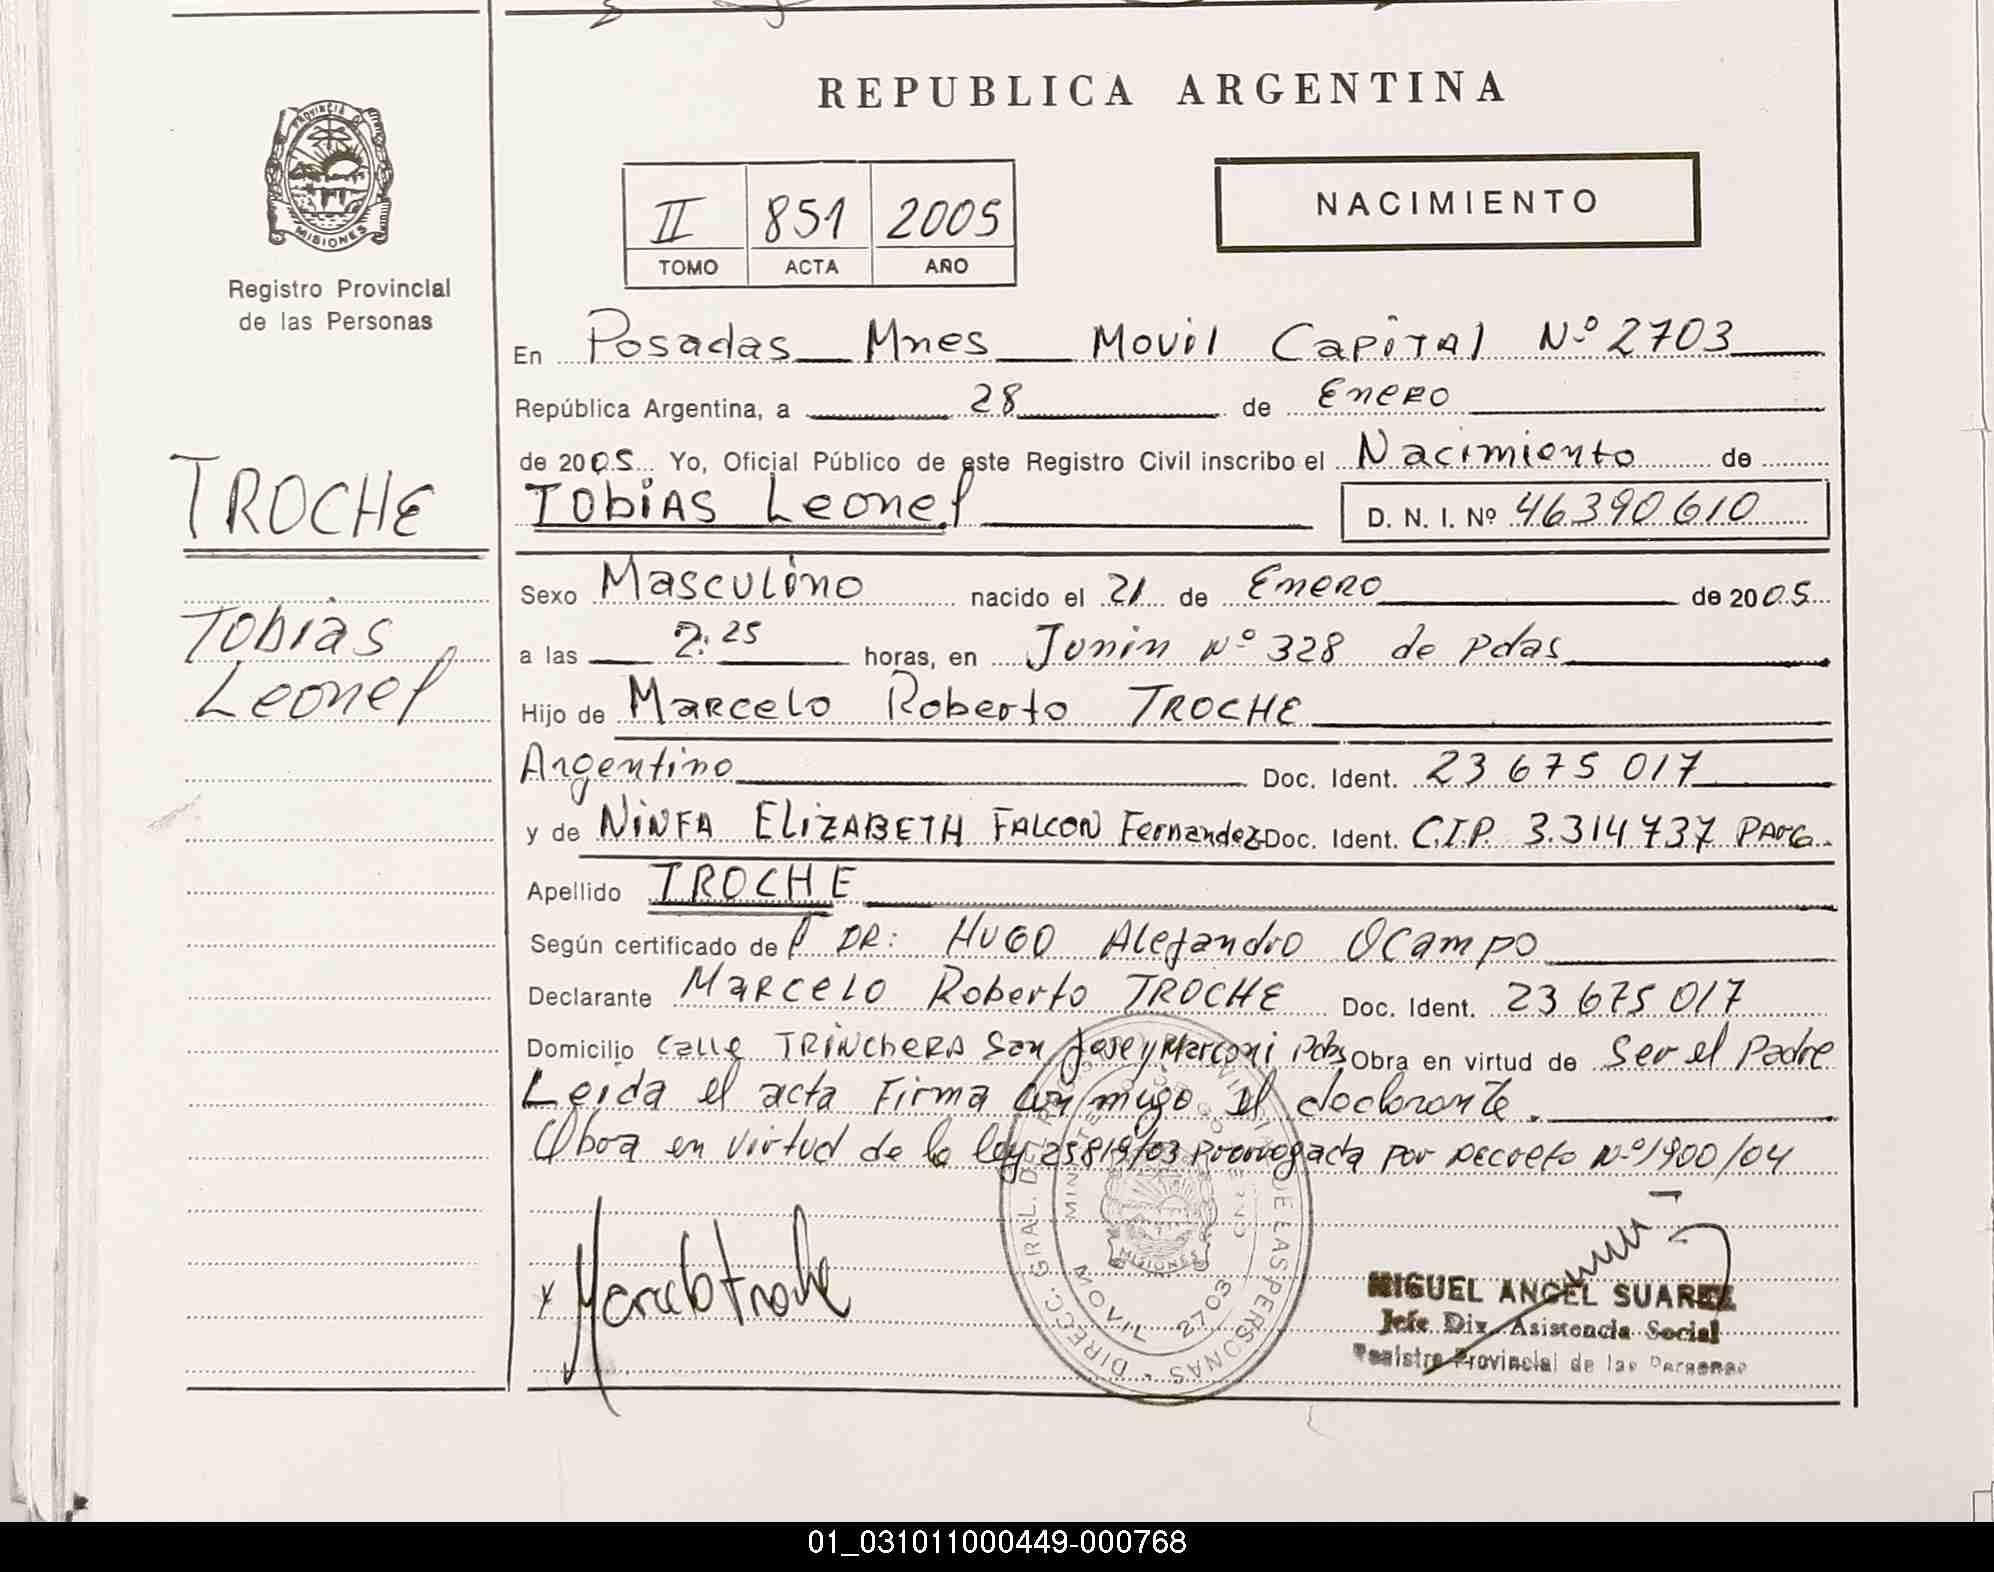 REPUBLICA ARGENTINA
PROVINCIA DE
MISIONES
Registro Provincial
de las Personas
II 851 2005
TOMO ACTA AÑO
NACIMIENTO
En Posadas Mnes Movil Capital Nº 2703
República Argentina, a 28 de Enero
de 2005 Yo, Oficial Público de este Registro Civil inscribo el Nacimiento de
TROCHE
Tobias Leonel D. N. I. Nº 46390610
Sexo Masculino nacido el 21 de Enero de 2005
Tobias
a las 2:25 horas, en Junin Nº 328 de Pdas
Leonel
Hijo de Marcelo Roberto TROCHE
Argentino Doc. Ident. 23 675 017
y de NINFA ELIZABETH FALCON Fernandez Doc. Ident. C.I.P. 3.314 737 PARG.
Apellido TROCHE
Según certificado del DR: HUGO Alejandro Ocampo
Declarante Marcelo Roberto TROCHE Doc. Ident. 23 675 017
Domicilio Calle TRINCHERA San Jose y Marconi Pdas Obra en virtud de Ser el Padre
Leida el acta Firma conmigo el declarante.
Obra en virtud de la ley 25819/03 Prorrogada por Decreto Nº 1900/04
DIRECC. GRAL. DE LAS PERSONAS
MISIONES
MOVIL 2703
Marcelo Troche
MIGUEL ANGEL SUAREZ
Jefe Div. Asistencia Social
Registro Provincial de las Personas
01_031011000449-000768